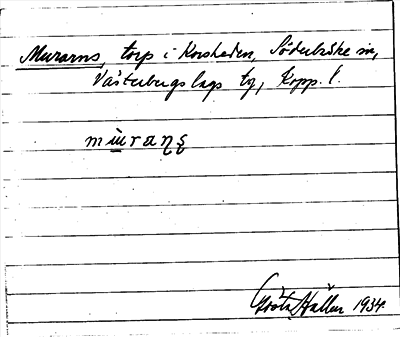 Murarns, torp i Korsheden, Söderbärke sn,
Västerbergslags tg, Kopp. l.
mu̇raṇs
Gösta Hallin 1934